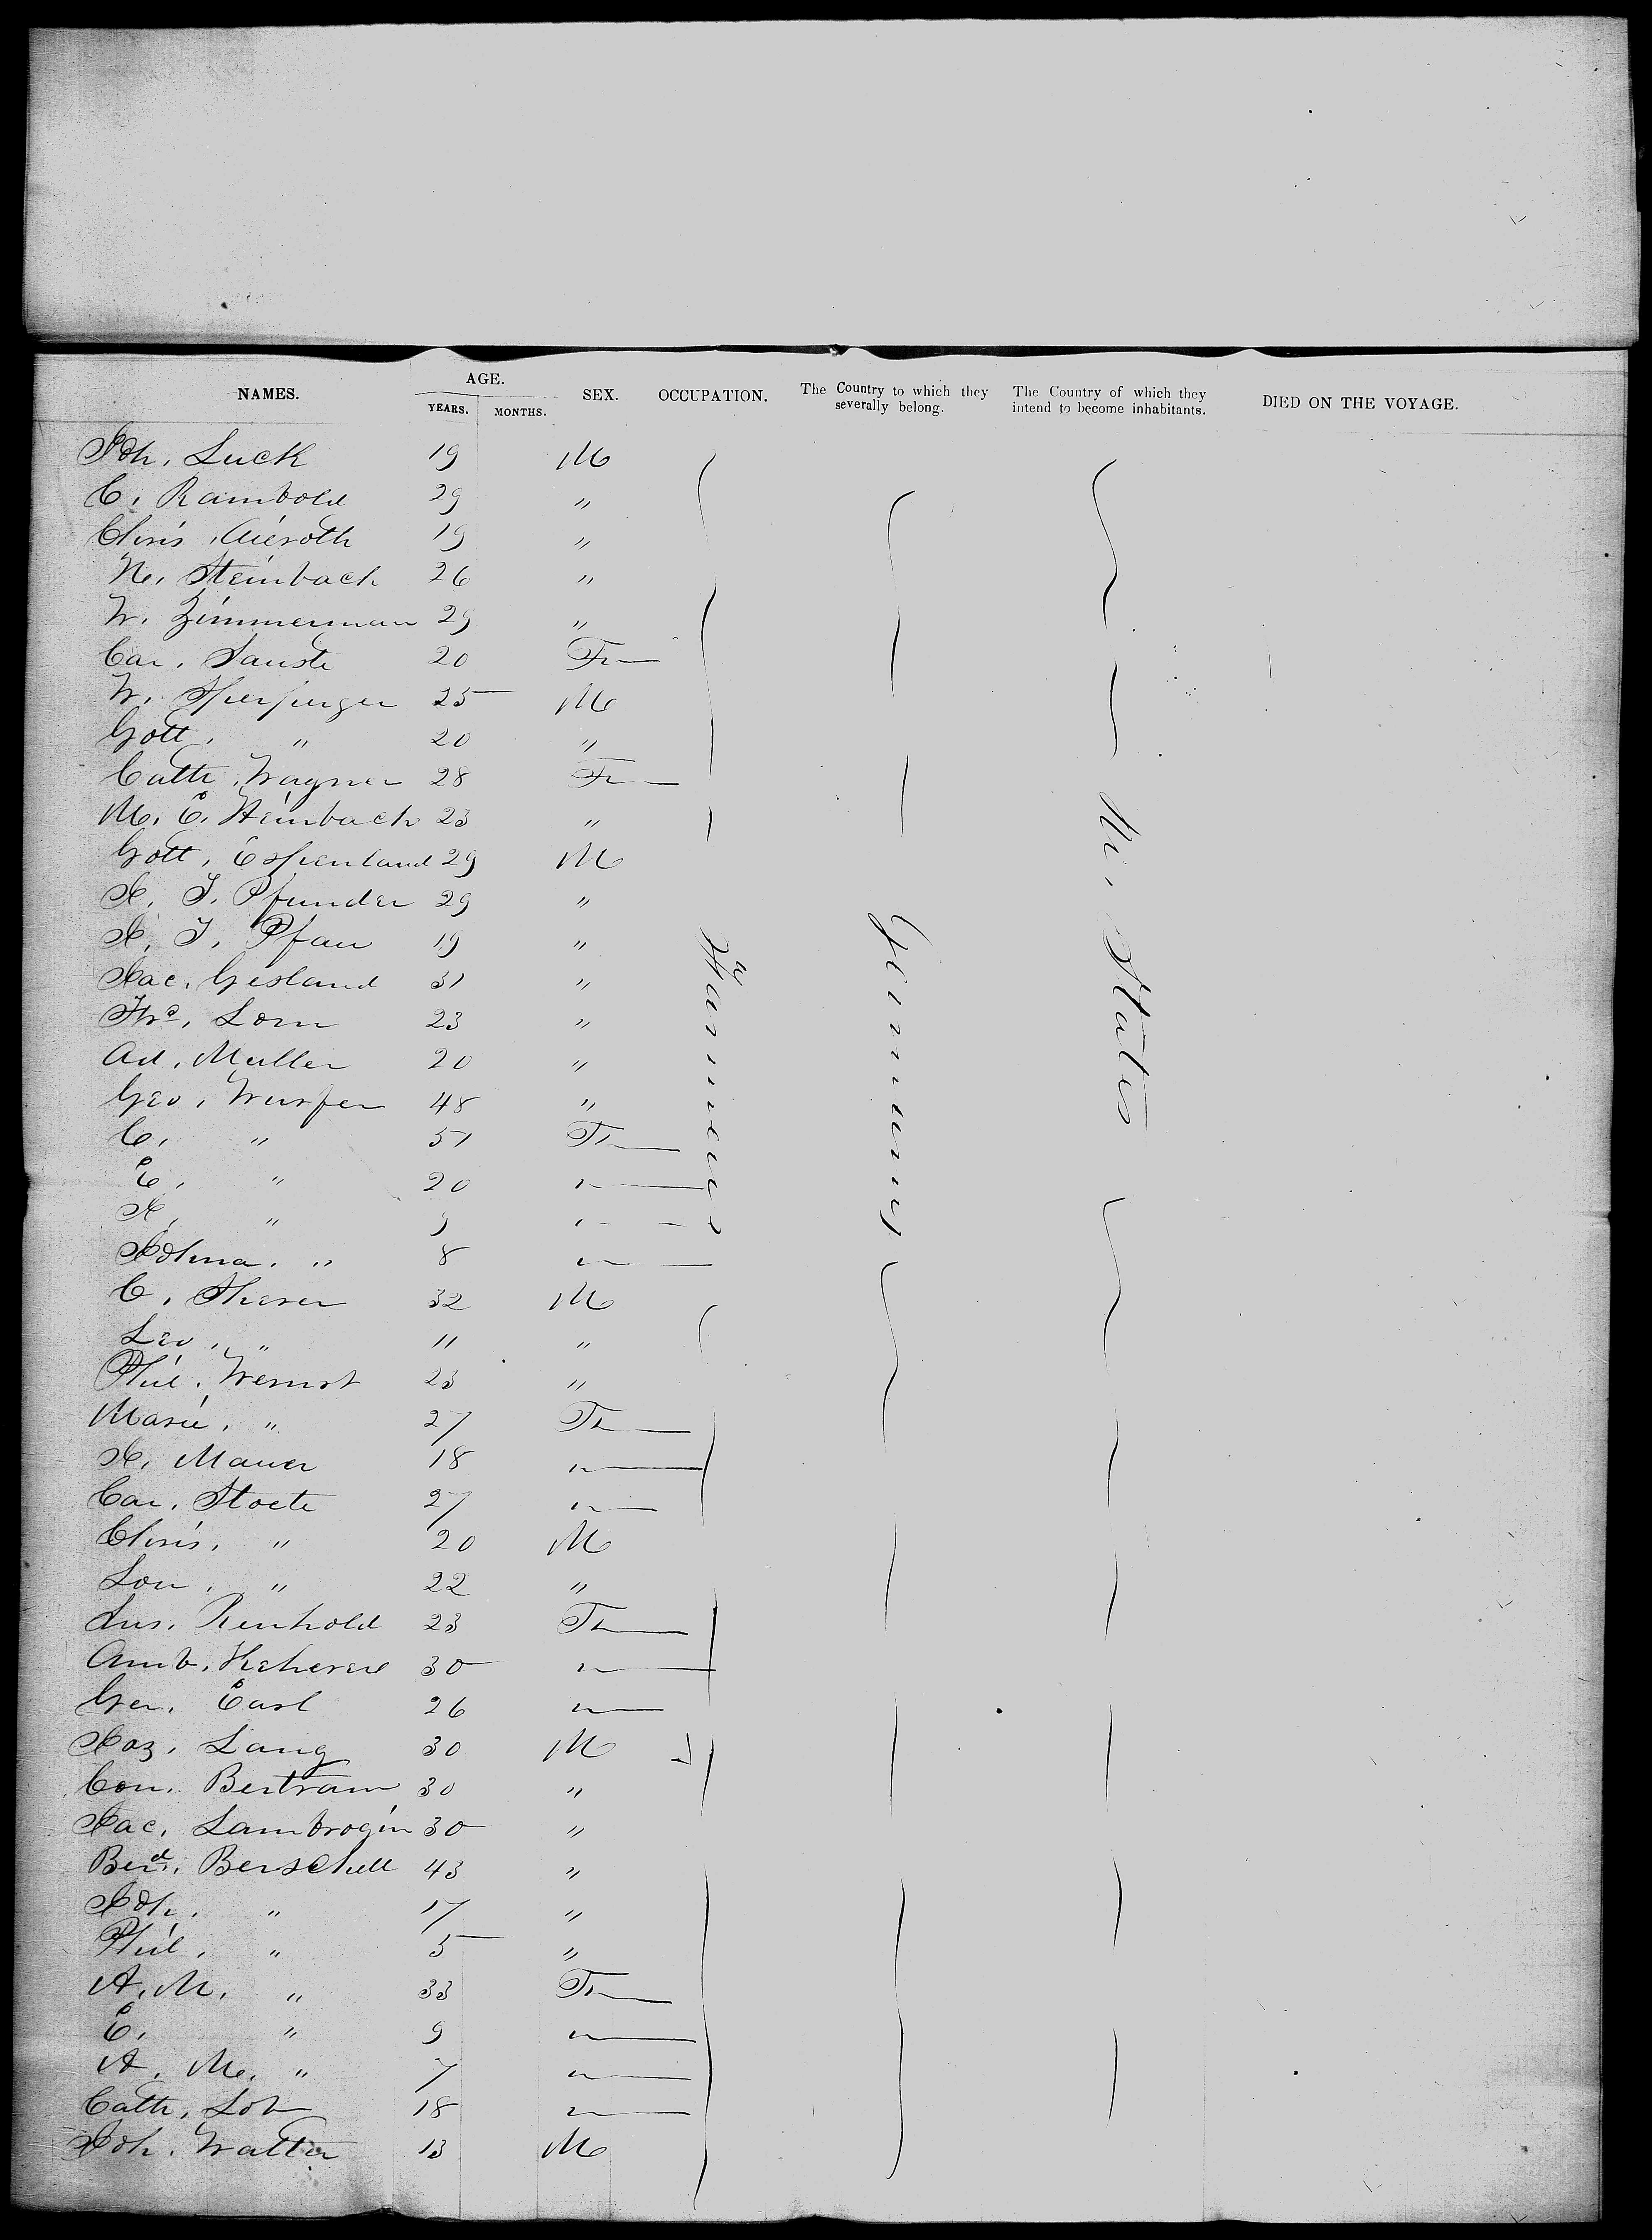 NAMES. AGE. YEARS. MONTHS. SEX. OCCUPATION. The Country to which they severally belong. The Country of which they intend to become inhabitants. DIED ON THE VOYAGE.
Joh. Luck 19 M
C. Rambold 29 "
Chris. Aieroth 19 "
N. Steinbach 26 "
W. Zimmerman 29 "
Car. 20 F
W. 25 M
Gott. " 20 "
Cath. Wagner 28 F
M. E. Steinbach 23 "
Gott. Espenland 29 M
J. J. Pfunder 29 "
J. J. Pfau 19 "
Jac. Gesland 31 "
Thos. Lorn 23 "
Ad. Muller 20 "
Geo. Wurfer 48 "
C. " 51 F
E. " 20 "
J. " 9 "
Johna. " 8 "
C. 32 M
Leo. " 11 "
Phil. Wernst 23 "
Marie. " 27 F
J. Mauer 18 "
Car. Stoete 27 "
Chris. " 20 M
Lou. " 22 "
Lus. Reinhold 23 F
Amb. 30 "
Ger. Earl 26 "
Joz. Lang 30 M
Con. Bertram 30 "
Jac. Lambrogin 30 "
Berd. Berschell 43 "
Joh. " 17 "
Phil. " 5 "
A. M. " 33 F
E. " 9 "
A. M. " 7 "
Cath. Lob 18 "
Joh. Walter 13 M
Farmers
Germany
U. States